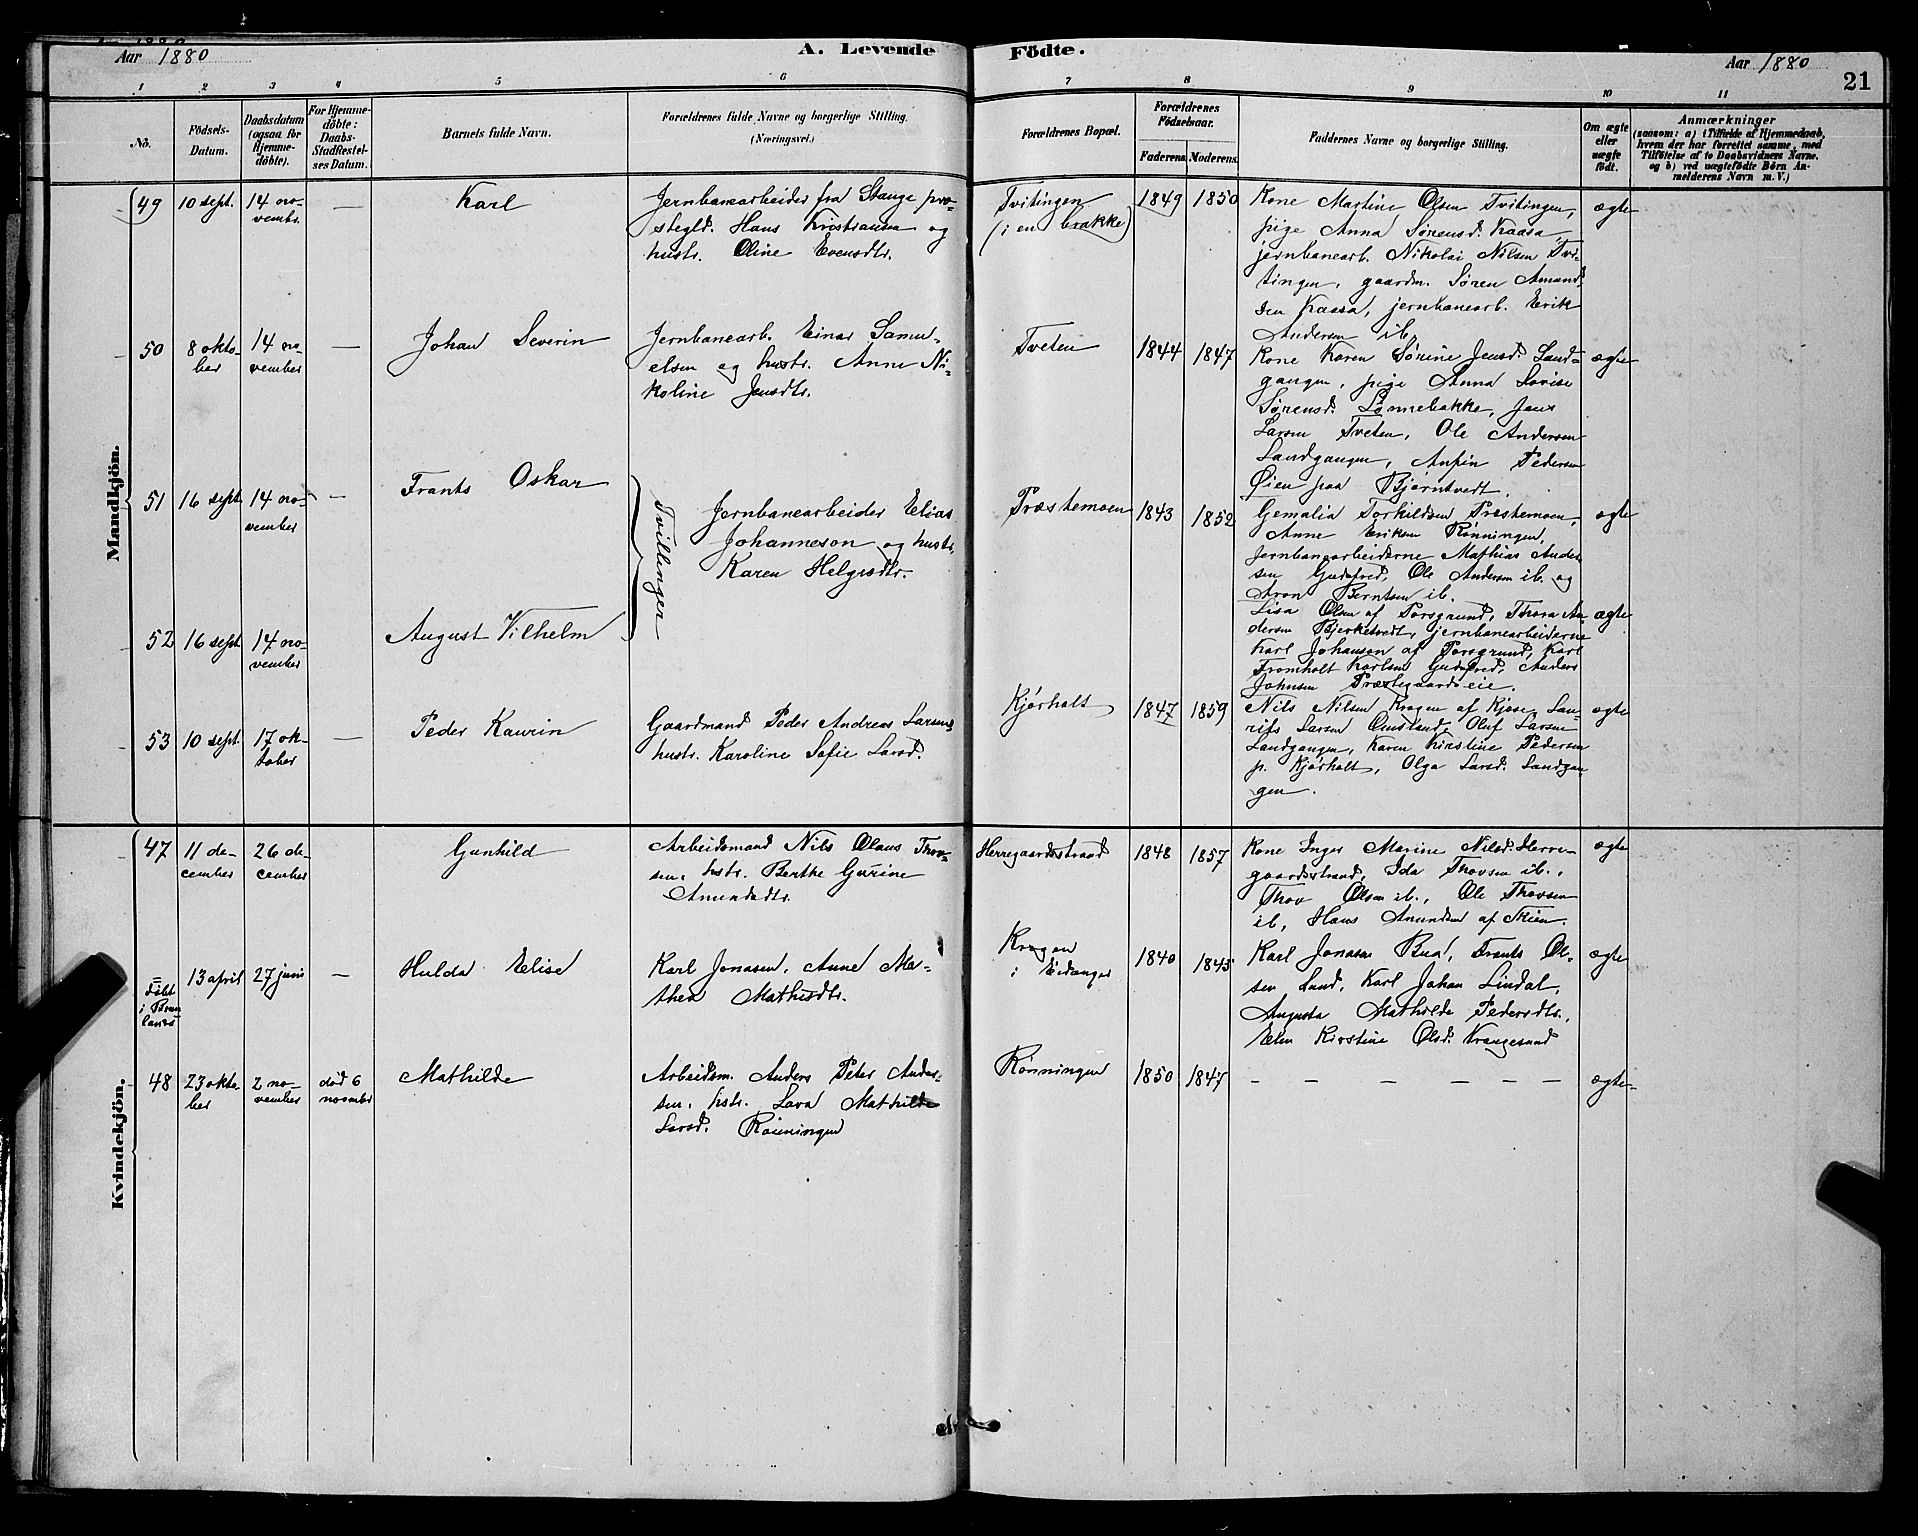 Aar 1880
A. Levende
Födte.
Aar 1880
21
1 2 3 4 5 6 7 8 9 10 11
No.
Födsels-
Datum.
Daabsdatum
(ogsaa for
Hjemme-
döbte).
For Hjemme-
döbte:
Daabs-
Stadfæstel-
ses Datum.
Barnets fulde Navn.
Forældrenes fulde Navne og borgerlige Stilling.
(Næringsvei.)
Forældrenes Bopæl.
Forældrenes
Födselsaar.
Faderens.
Moderens.
Faddernes Navne og borgerlige Stilling.
Om ægte
eller
uægte
födt.
Anmærkninger
(saasom: a) i Tilfælde af Hjemmedaab,
hvem der har forrettet samme, med
Tilföielse af to Daabsvidners Navne.
og b) ved uægtefödte Börn An-
melderens Navn m. V.)
Mandkjön.
49
10 sept.
14 no-
vembr.
—
Karl
Jernbanearbeider fra Stange præ-
stegld. Hans Kristiansen og
hustr. Oline Evensdtr.
Tvitingen
(i en brakke)
1849
1850
Kone Martine Olsen Tvitingen,
pige Anna Sørensd. Kaasa
jernbanearb. Nikolai Nilsen Tvi-
tingen, gaardm. Søren Amund-
sen Kaasa, jernbanearb. Erik
Andersen ib.
ægte
50
8 okto-
ber
14 no-
vember
—
Johan Severin
Jernbanearb. Einar Samu-
elsen og hustr. Anne Ni-
koline Jensdtr.
Tveten
1844
1847
Kone Karen Sørine Jensd. Land-
gangen, pige Anna Lovise
Sørensd. Lønnebakke, Jens
Larsen Tveten, Ole Andersen
Landgangen, Anfin Pedersen
Øien paa Bjørntvedt.
ægte
51
16 sept.
14 no-
vember
—
Frants Oskar
Tvillinger
Jernbanearbeider Elias
Johanneson og hustr.
Karen Helgesdtr.
Præstemoen
1843
1852
Gemalia Torkildsen Præstemoen,
Anne Eriksen Rønningen,
Jernbanearbeiderne Mathias Ander-
sen Gudsfred, Ole Andersen ib. og
Aron Berntsen ib.
ægte
52
16 sept.
14 no-
vember
August Vilhelm
Lisa Olsen af Porsgrund, Thora An-
dersen Bjerketvedt, jernbanearbeiderne
Karl Johanson af Porsgrund, Karl
Fromholt Karlsen Gudsfred, Anders
Johnsen Præstegaardseie.
ægte
53
10 sept.
17 ok-
tober
—
Peder Kaurin
Gaardmand Peder Andreas Larsen,
hustr. Karoline Sofie Larsd.
Kjørholt
1847
1859
Nils Nilsen Krogen af Kjøse, Lau-
rits Larsen Ønsland, Oluf Larsen
Landgangen, Karen Kirstine Pedersen
p. Kjørholt, Olga Larsd. Landgan-
gen.
ægte
Kvindekjön.
47
11 de-
cember
26 de-
cember
Gunhild
Arbeidsmand Nils Olaus Thov-
sen, hstr. Berthe Gurine
Amundsdtr.
Herregaardsstrand
1848
1857
Kone Inger Marine Nilsd. Herre-
gaardsstrand, Ida Thovsen ib.,
Thov Olsen ib., Ole Thovsen
ib, Hans Amundsen af Skien.
ægte
=
Født
i Brun-
lanes
13 april
27 juni
—
Hulda Elise
Karl Jonasen, Anne Ma-
thea Mathisdtr.
Krogen
i Eidanger
1840
1845
Karl Jonasen Bua, Frants Ol-
sen Lund, Karl Johan Lindal,
Augusta Mathilde Pedersdtr.,
Elen Kirstine Olsd. Vrangesund
ægte
48
23 okto-
ber
2 no-
vember
død 6
november
Mathilde
Arbeidsm. Anders Peter Ander-
sen, hstr. Lava Mathilde
Larsd. Rønningen
Rønningen
1850
1847
— — — — — —
ægte